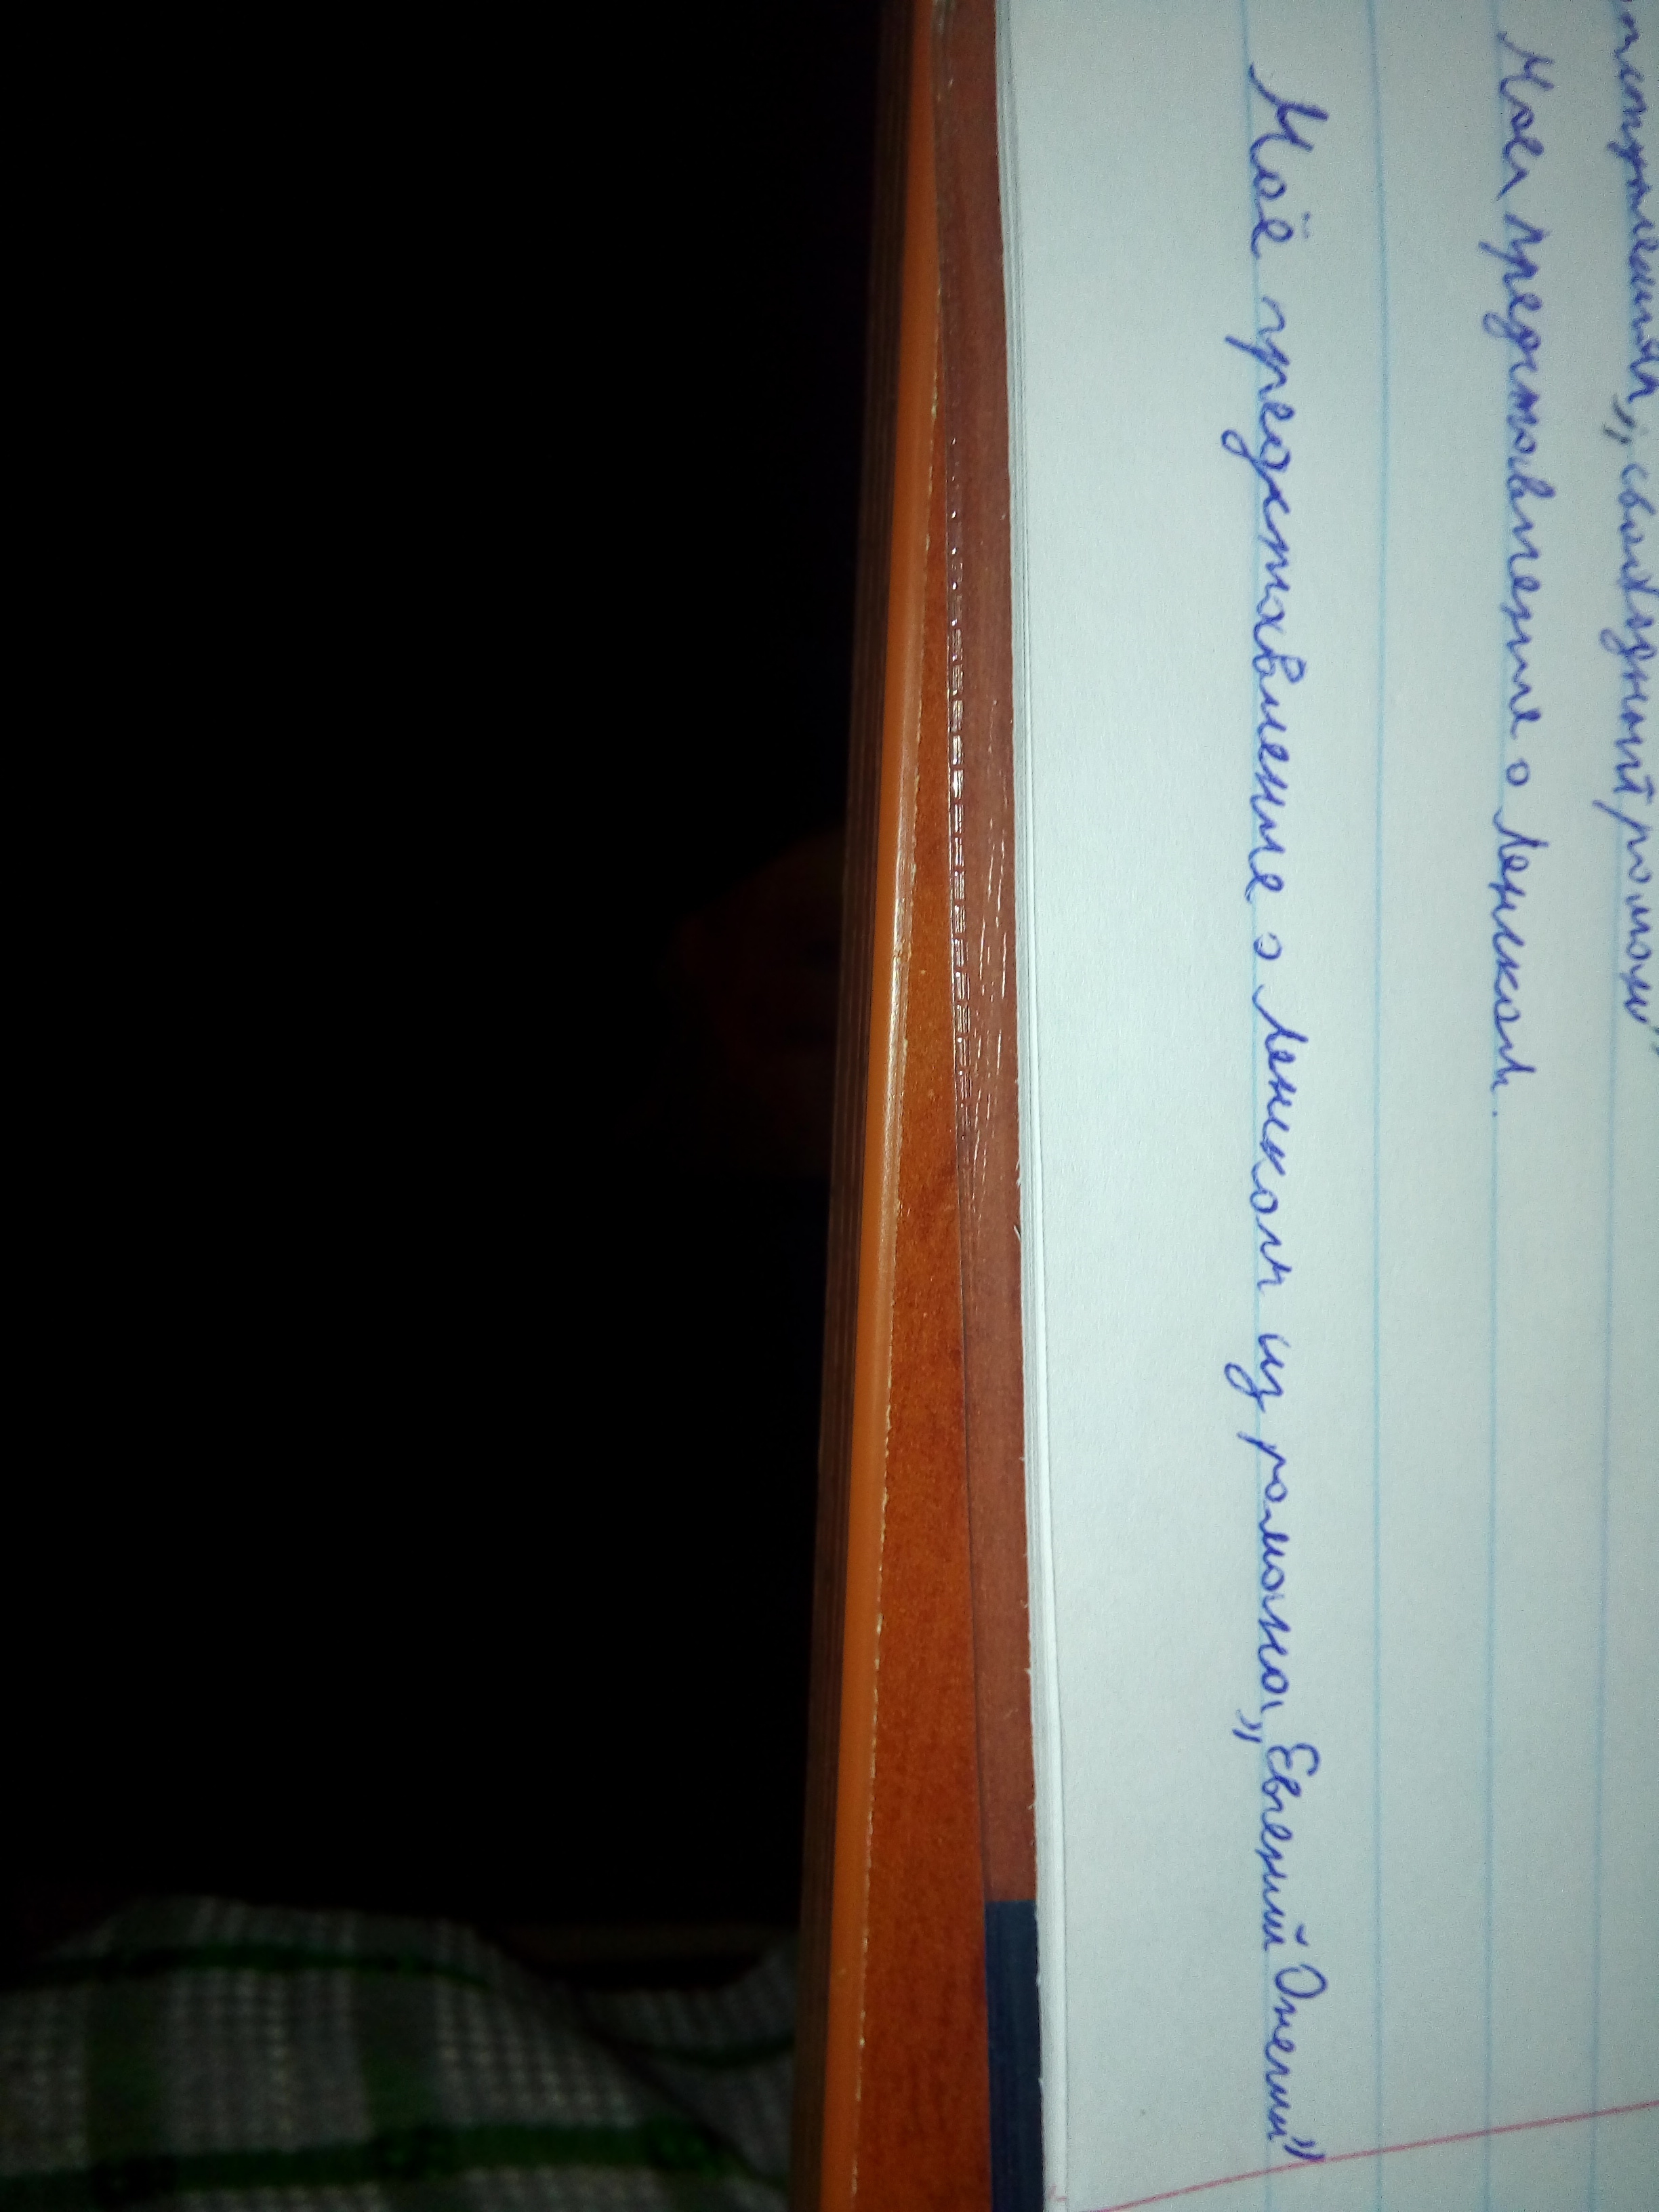 „свободный роман"
представление о Ленском.
Моё представление о Ленском из романа „Евгений Онегин"